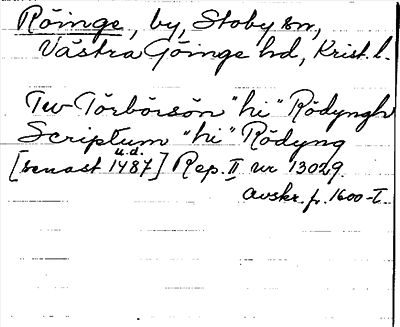 Röinge, by, Stoby sn,
Västra Göinge hd, Krist. l.
Tuv Törbörsön "hi" Rödyngh
Scriptum "hi" Rödyng
u.d.
[senast 1487] Rep. II nr 13029.
avskr. fr. 1600-t.